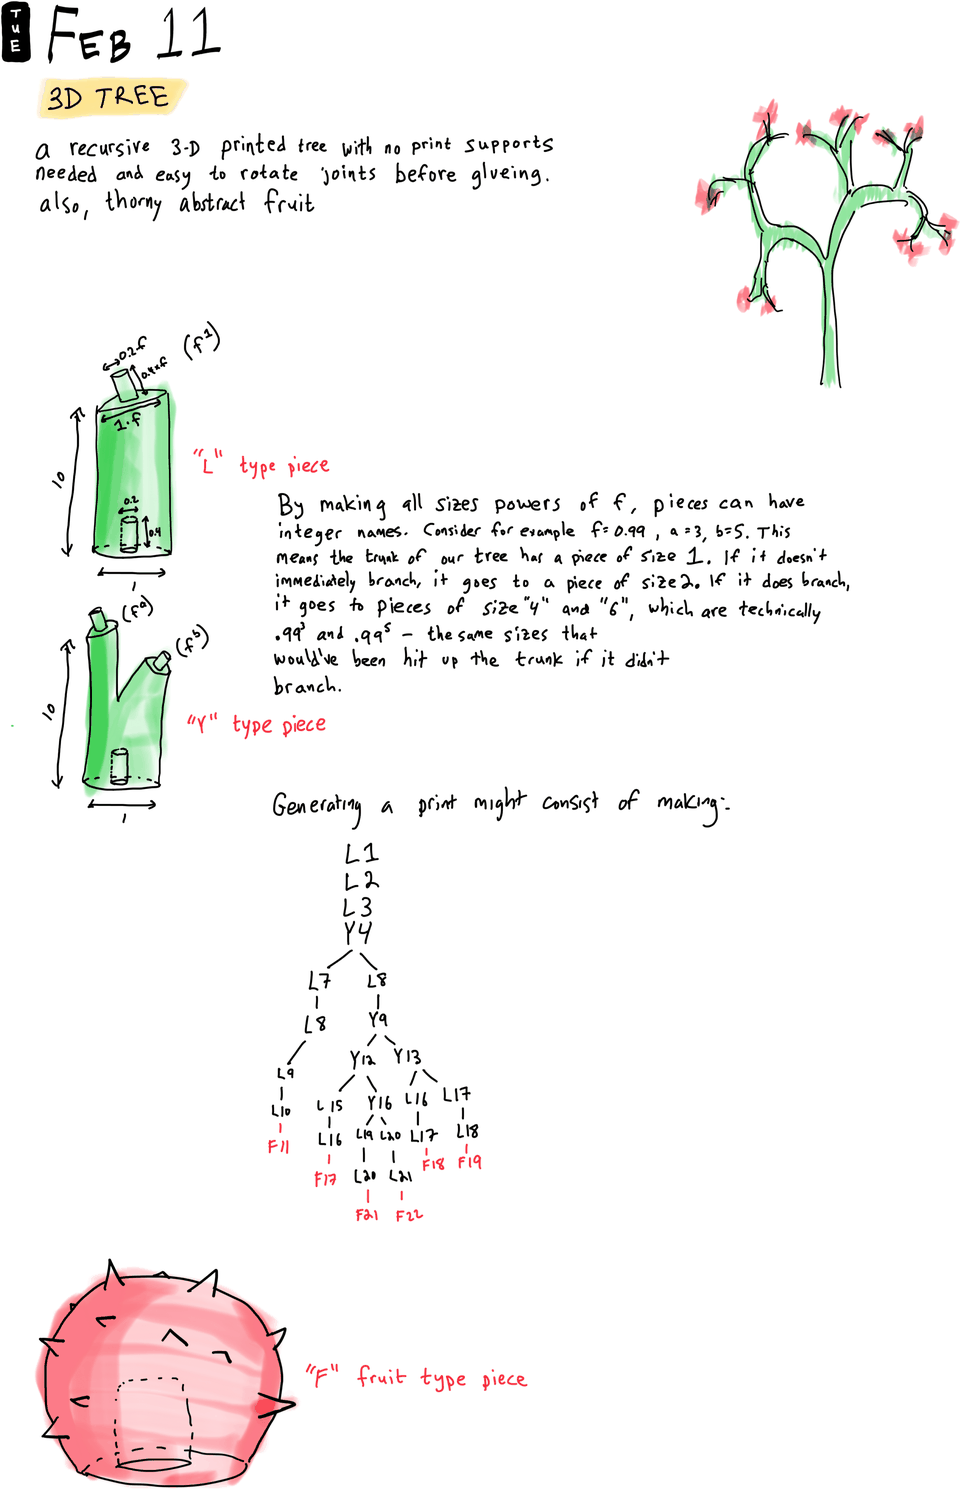 TUE
FEB 11
3D TREE
a recursive 3-D printed tree with no print supports
needed and easy to rotate joints before glueing.
also, thorny abstract fruit
0.2·f
0.4×f
(f¹)
1·f
10
0.2
0.4
1
"L" type piece
By making all sizes powers of f, pieces can have
integer names. Consider for example f=0.99, a=3, b=5. This
means the trunk of our tree has a piece of size 1. If it doesn't
immediately branch, it goes to a piece of size 2. If it does branch,
it goes to pieces of size "4" and "6", which are technically
.99³ and .99⁵ – the same sizes that
would've been hit up the trunk if it didn't
branch.
(fᵃ)
(fᵇ)
10
1
"Y" type piece
Generating a print might consist of making:
L1
L2
L3
Y4
L7 L8
L8 Y9
L9 Y12 Y13
L10 L15 Y16 L16 L17
F11 L16 L19 L20 L17 L18
F17 L20 L21 F18 F19
F21 F22
"F" fruit type piece